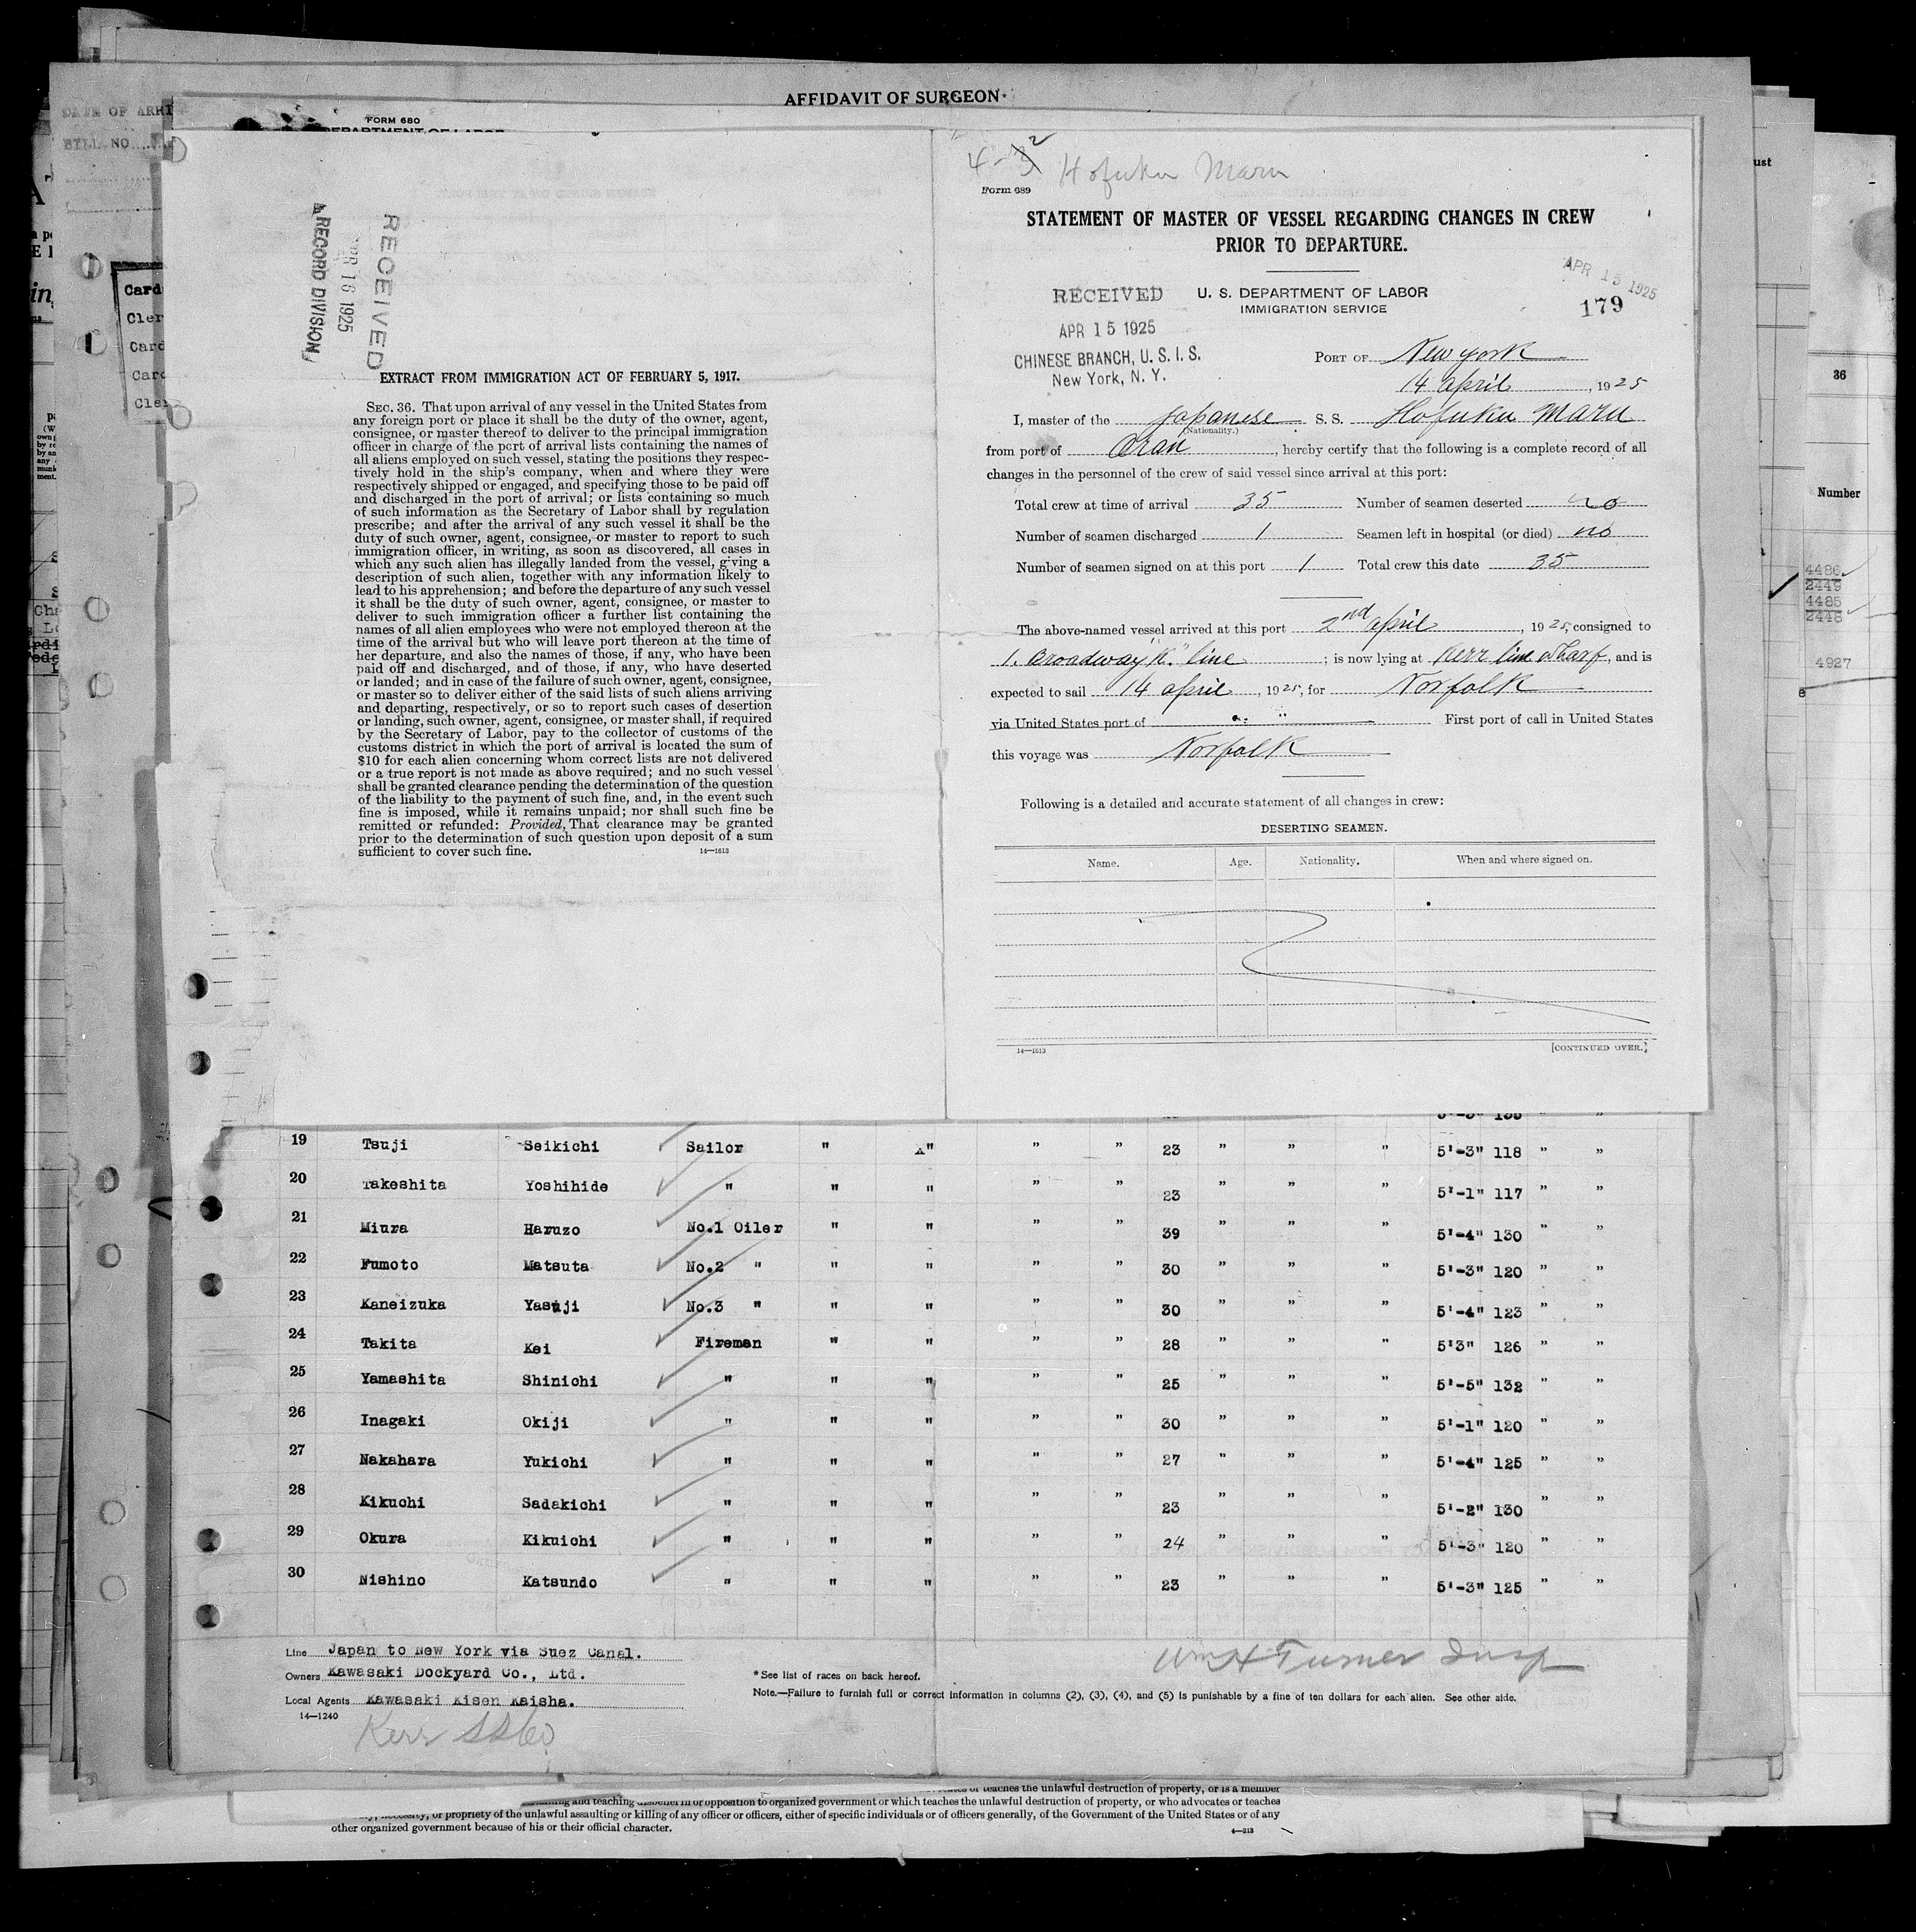 AFFIDAVIT OF SURGEON
DATE OF ARRI
BILL NO
FORM 680
Card
Cler
Card
Card
Cler
RECEIVED
APR 16 1925
RECORD DIVISION
EXTRACT FROM IMMIGRATION ACT OF FEBRUARY 5, 1917.
SEC. 36. That upon arrival of any vessel in the United States from
any foreign port or place it shall be the duty of the owner, agent,
consignee, or master thereof to deliver to the principal immigration
officer in charge of the port of arrival lists containing the names of
all aliens employed on such vessel, stating the positions they respec-
tively hold in the ship's company, when and where they were
respectively shipped or engaged, and specifying those to be paid off
and discharged in the port of arrival; or lists containing so much
of such information as the Secretary of Labor shall by regulation
prescribe; and after the arrival of any such vessel it shall be the
duty of such owner, agent, consignee, or master to report to such
immigration officer, in writing, as soon as discovered, all cases in
which any such alien has illegally landed from the vessel, giving a
description of such alien, together with any information likely to
lead to his apprehension; and before the departure of any such vessel
it shall be the duty of such owner, agent, consignee, or master to
deliver to such immigration officer a further list containing the
names of all alien employees who were not employed thereon at the
time of the arrival but who will leave port thereon at the time of
her departure, and also the names of those, if any, who have been
paid off and discharged, and of those, if any, who have deserted
or landed; and in case of the failure of such owner, agent, consignee,
or master so to deliver either of the said lists of such aliens arriving
and departing, respectively, or so to report such cases of desertion
or landing, such owner, agent, consignee, or master shall, if required
by the Secretary of Labor, pay to the collector of customs of the
customs district in which the port of arrival is located the sum of
$10 for each alien concerning whom correct lists are not delivered
or a true report is not made as above required; and no such vessel
shall be granted clearance pending the determination of the question
of the liability to the payment of such fine, and, in the event such
fine is imposed, while it remains unpaid; nor shall such fine be
remitted or refunded: Provided, That clearance may be granted
prior to the determination of such question upon deposit of a sum
sufficient to cover such fine. 14—1613
4-2 Hofuku Maru
Form 689
STATEMENT OF MASTER OF VESSEL REGARDING CHANGES IN CREW
PRIOR TO DEPARTURE.
RECEIVED
APR 15 1925
CHINESE BRANCH, U. S. I. S.
New York, N. Y.
U. S. DEPARTMENT OF LABOR
IMMIGRATION SERVICE
APR 15 1925
179
PORT OF New York
14 April, 1925
I, master of the Japanese S. S. Hofuku Maru
(Nationality.)
from port of Oran, hereby certify that the following is a complete record of all
changes in the personnel of the crew of said vessel since arrival at this port:
Total crew at time of arrival 35 Number of seamen deserted no
Number of seamen discharged 1 Seamen left in hospital (or died) no
Number of seamen signed on at this port 1 Total crew this date 35
The above-named vessel arrived at this port 2nd April, 1925, consigned to
1. Broadway "K." line; is now lying at Kerr line wharf, and is
expected to sail 14 April, 1925, for Norfolk
via United States port of First port of call in United States
this voyage was Norfolk
Following is a detailed and accurate statement of all changes in crew:
DESERTING SEAMEN.
Name. Age. Nationality. When and where signed on.
14—1613 [CONTINUED OVER.]
36
Number
4486
2449
4485
2448
4927
19 Tsuji Seikichi Sailor " x" " " 23 " " " 5'-3" 118 " "
20 Takeshita Yoshihide " " " " " 23 " " " 5'-1" 117 " "
21 Miura Haruzo No.1 Oiler " " " " 39 " " " 5'-4" 130 " "
22 Fumoto Matsuta No.2 " " " " " 30 " " " 5'-3" 120 " "
23 Kaneizuka Yasuji No.3 " " " " " 30 " " " 5'-4" 123 " "
24 Takita Kei Fireman " " " " 28 " " " 5'3" 126 " "
25 Yamashita Shinichi " " " " " 25 " " " 5'-5" 132 " "
26 Inagaki Okiji " " " " " 30 " " " 5'-1" 120 " "
27 Nakahara Yukichi " " " " " 27 " " " 5'-4" 125 " "
28 Kikuchi Sadakichi " " " " " 23 " " " 5'-2" 130 " "
29 Okura Kikuichi " " " " " 24 " " " 5'-3" 120 " "
30 Nishino Katsundo " " " " " 23 " " " 5'-3" 125 " "
Line Japan to New York via Suez Canal.
Owners Kawasaki Dockyard Co., Ltd.
Local Agents Kawasaki Kisen Kaisha.
14—1240
Kerr SS Co
* See list of races on back hereof.
Wm H Turner Insp
Note.—Failure to furnish full or correct information in columns (2), (3), (4), and (5) is punishable by a fine of ten dollars for each alien. See other side.
teaches the unlawful destruction of property, or is a member
and teaching disbelief in or opposition to organized government or which teaches the unlawful destruction of property, or who advocates or teaches
necessity, or propriety of the unlawful assaulting or killing of any officer or officers, either of specific individuals or of officers generally, of the Government of the United States or of any
other organized government because of his or their official character.
4—213